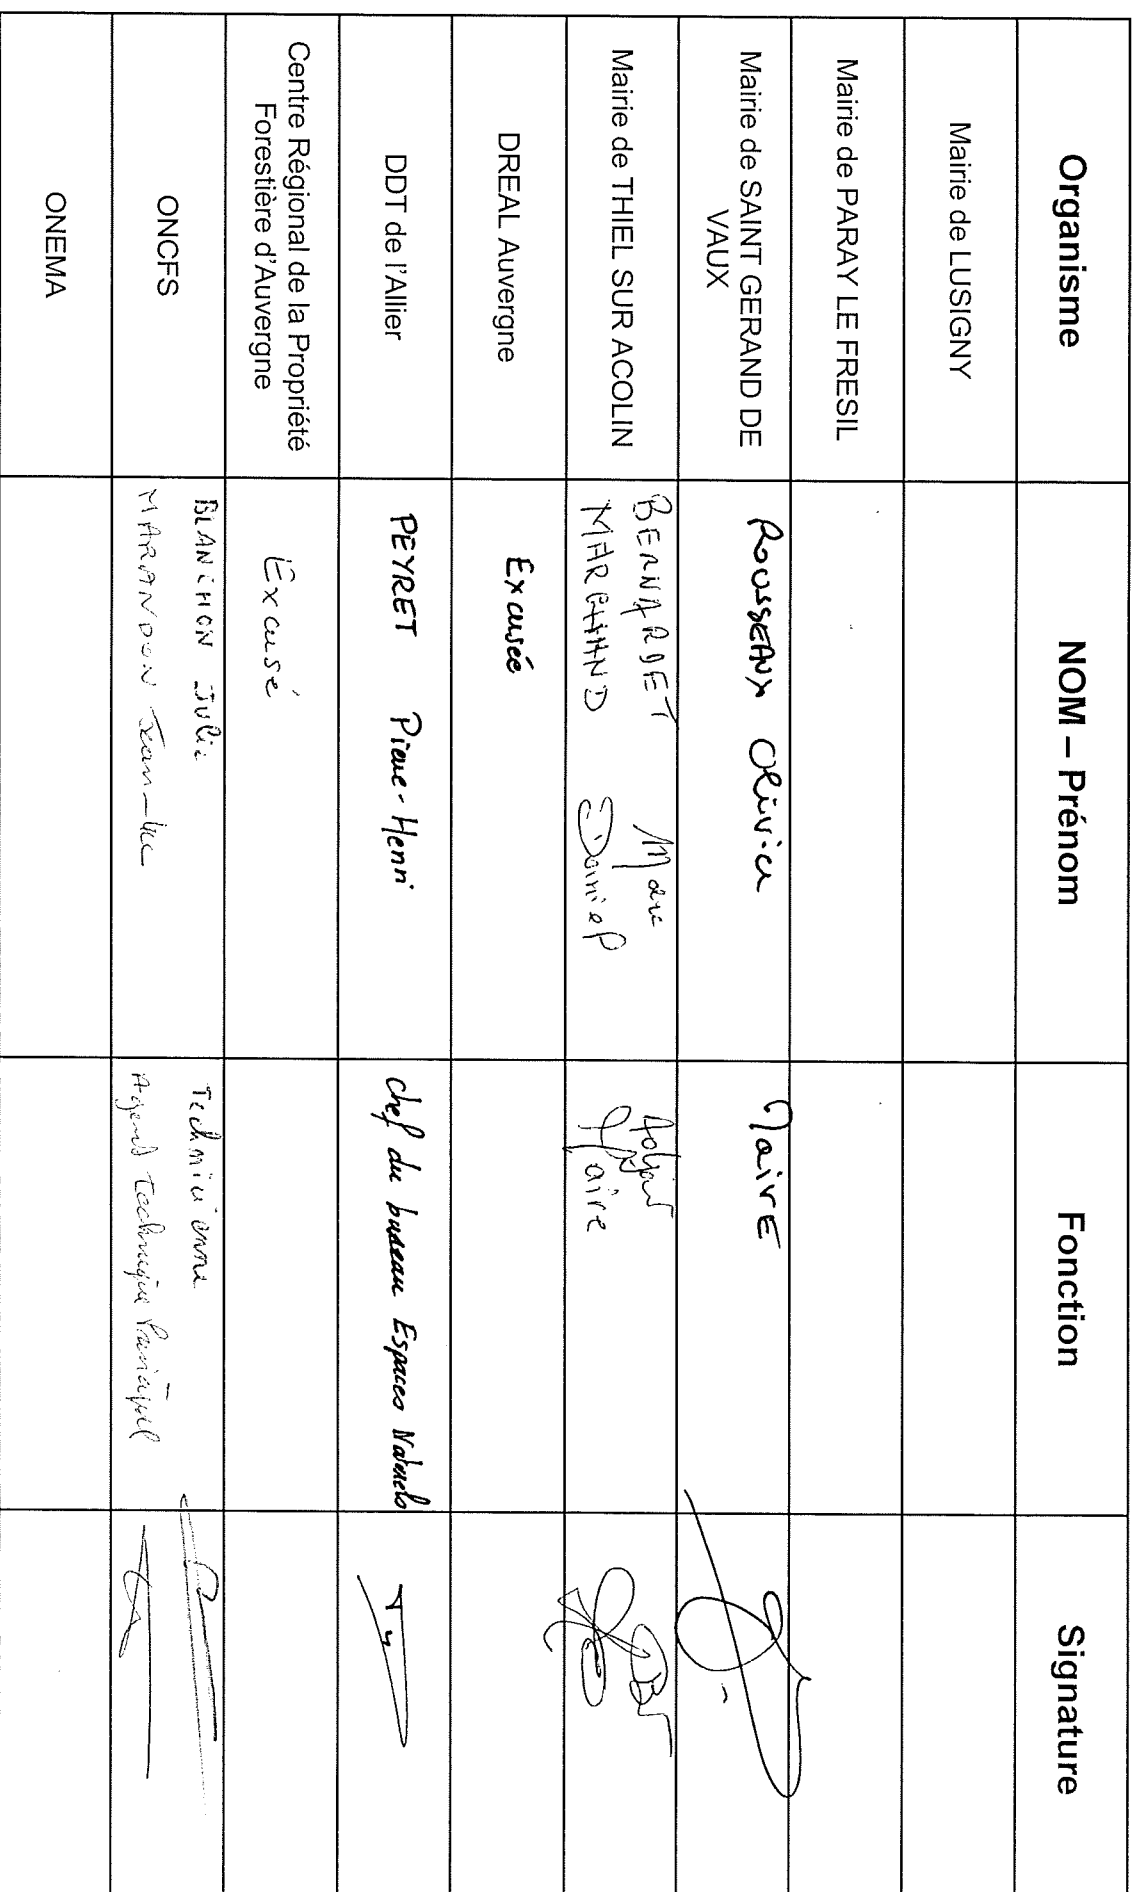 Organisme NOM – Prénom Fonction Signature
Mairie de LUSIGNY
Mairie de PARAY LE FRESIL
Mairie de SAINT GERAND DE
VAUX
ROUSSEAUX Olivier Maire
Mairie de THIEL SUR ACOLIN
BERNARDET Marc Adjoint
MARCHAND Daniel Maire
DREAL Auvergne Excusée
DDT de l'Allier PEYRET Pierre-Henri Chef du bureau Espaces Naturels
Centre Régional de la Propriété
Forestière d'Auvergne
Excusé
ONCFS
BLANCHON Julie Technicienne
MARANDON Jean-Luc Agent technique Principal
ONEMA